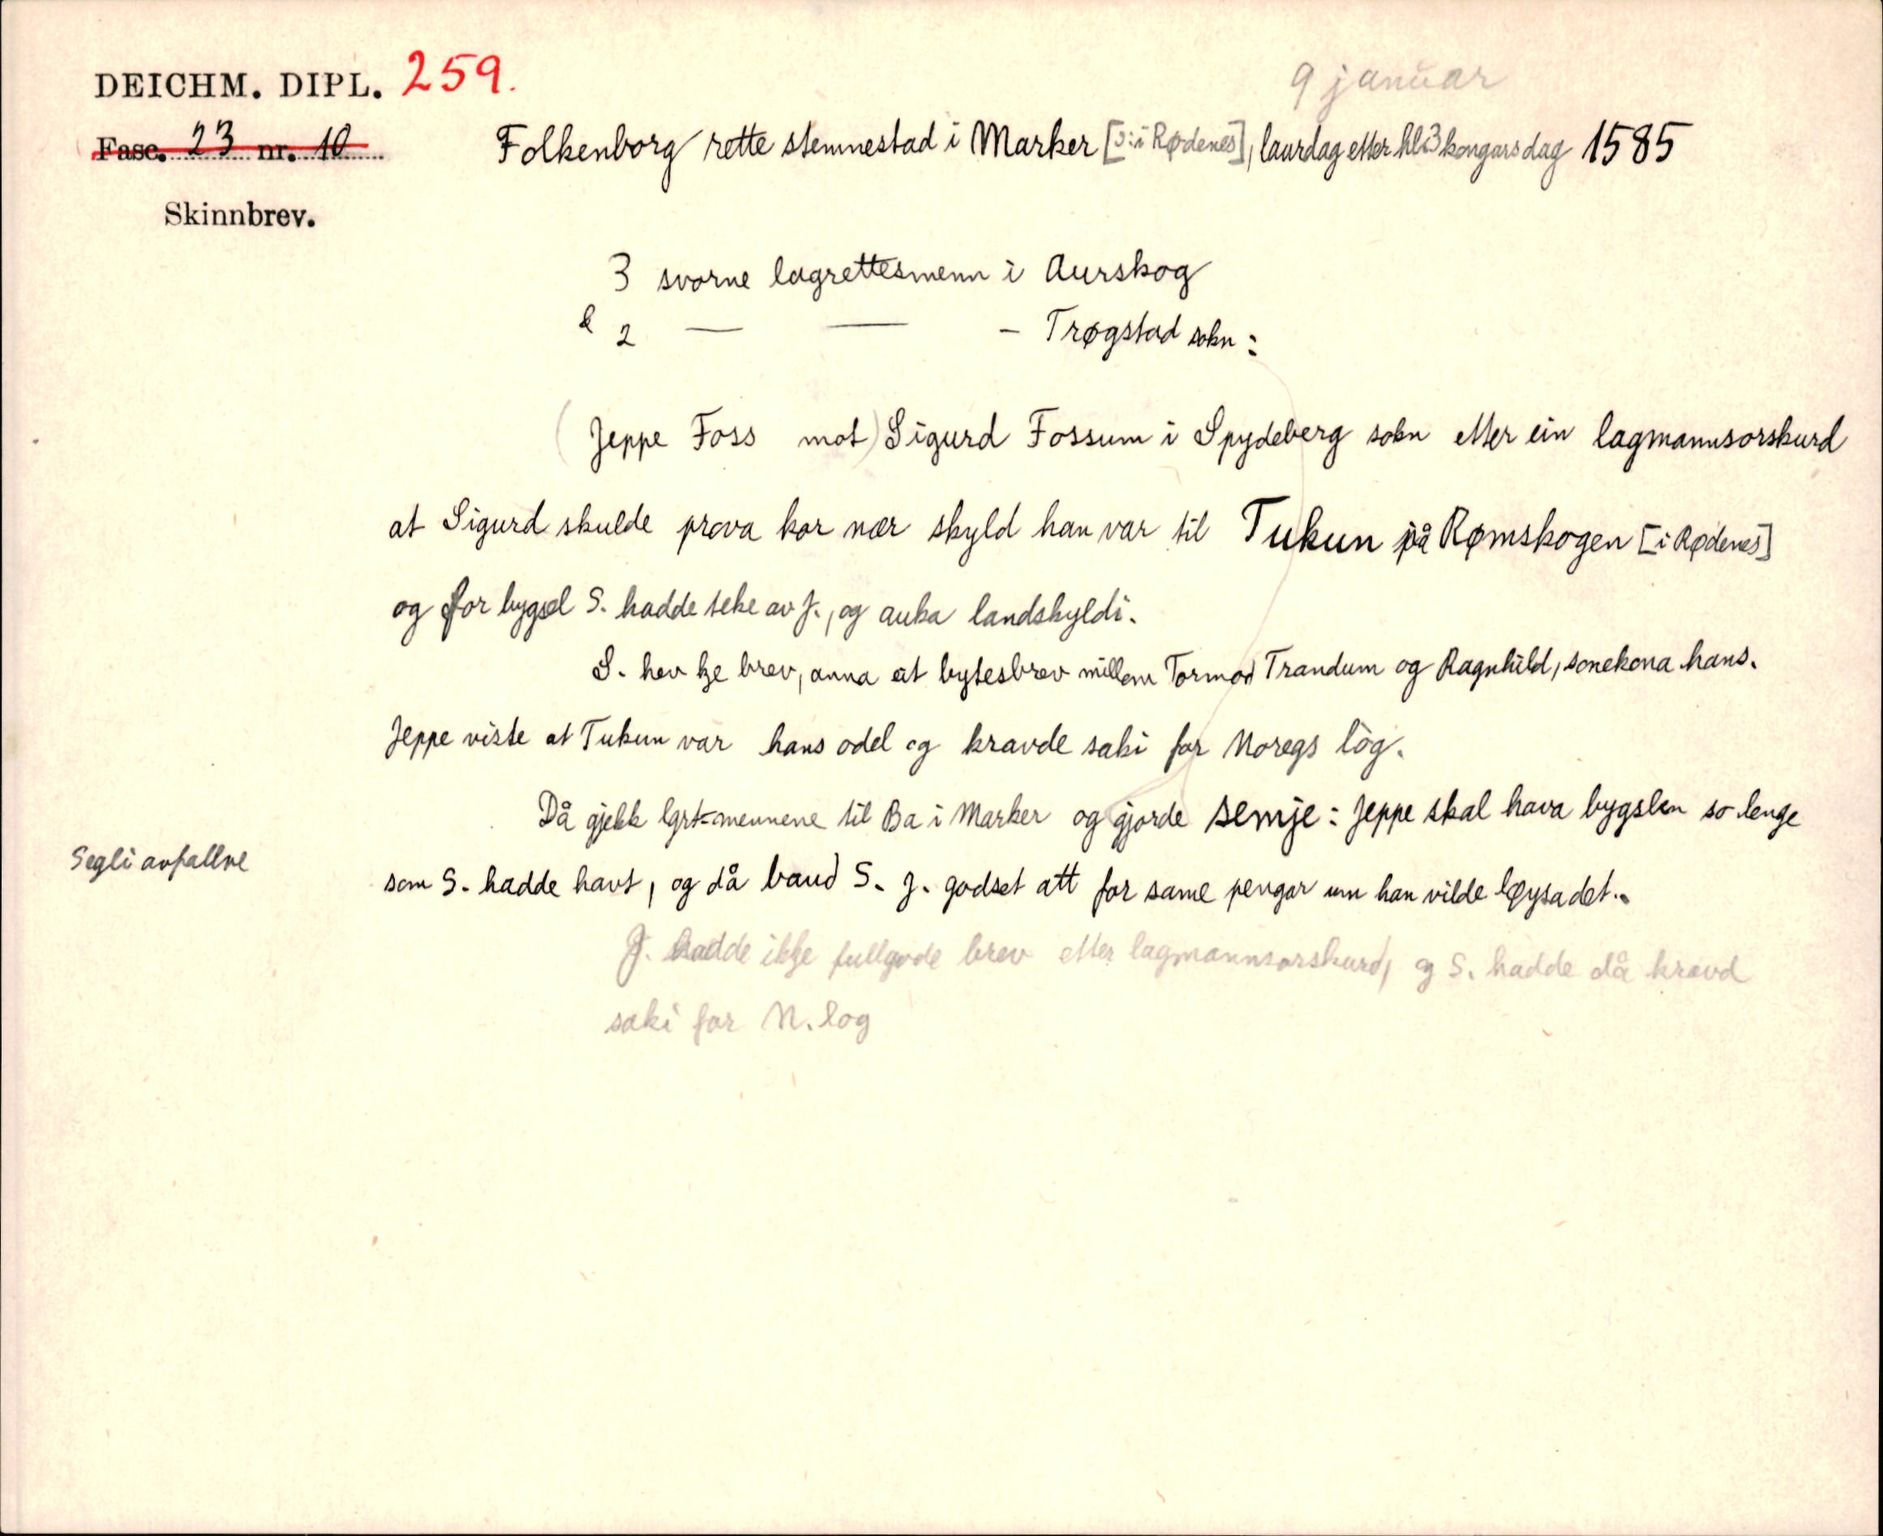 DEICHM. DIPL. 259.
9 januar
Fasc. 23 nr. 10
Folkenborg rette stemnestad i Marker [ɔ: i Rødenes], laurdag etter hl. 3 kongars dag 1585
Skinnbrev.
3 svorne lagrettesmenn i Aurskog
& 2 — — - Trøgstad sokn:
(Jeppe Foss mot) Sigurd Fossum i Spydeberg sokn etter ein lagmannsorskurd
at Sigurd skulde prova kor nær skyld han var til Tukun på Rømskogen [i Rødenes]
og for bygsel S. hadde teke av J., og auka landskyldi.
S. hev kje brev, anna at bytesbrev millom Tormod Trandum og Ragnhild, sonekona hans.
Jeppe viste at Tukun var hans odel og kravde saki for Noregs log.
Då gjekk lgrt=mennene til Ba i Marker og gjorde semje: Jeppe skal hava bygslen so lenge
Segli avfallne
som S. hadde havt, og då baud S. J. godset att for same pengar um han vilde løysa det.
J. hadde ikkje fullgode brev etter lagmannsorskurd, og S. hadde då kravd
saki for N. log